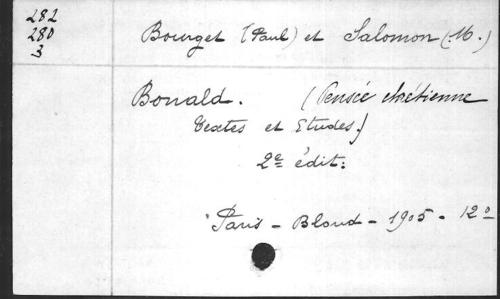 282
280
3
Bourget (Paul) et Salomon (M.)
Bonald. (Pensée chrétienne
Textes et Etudes.)
2e édit:
Paris - Bloud - 1905 - 12o